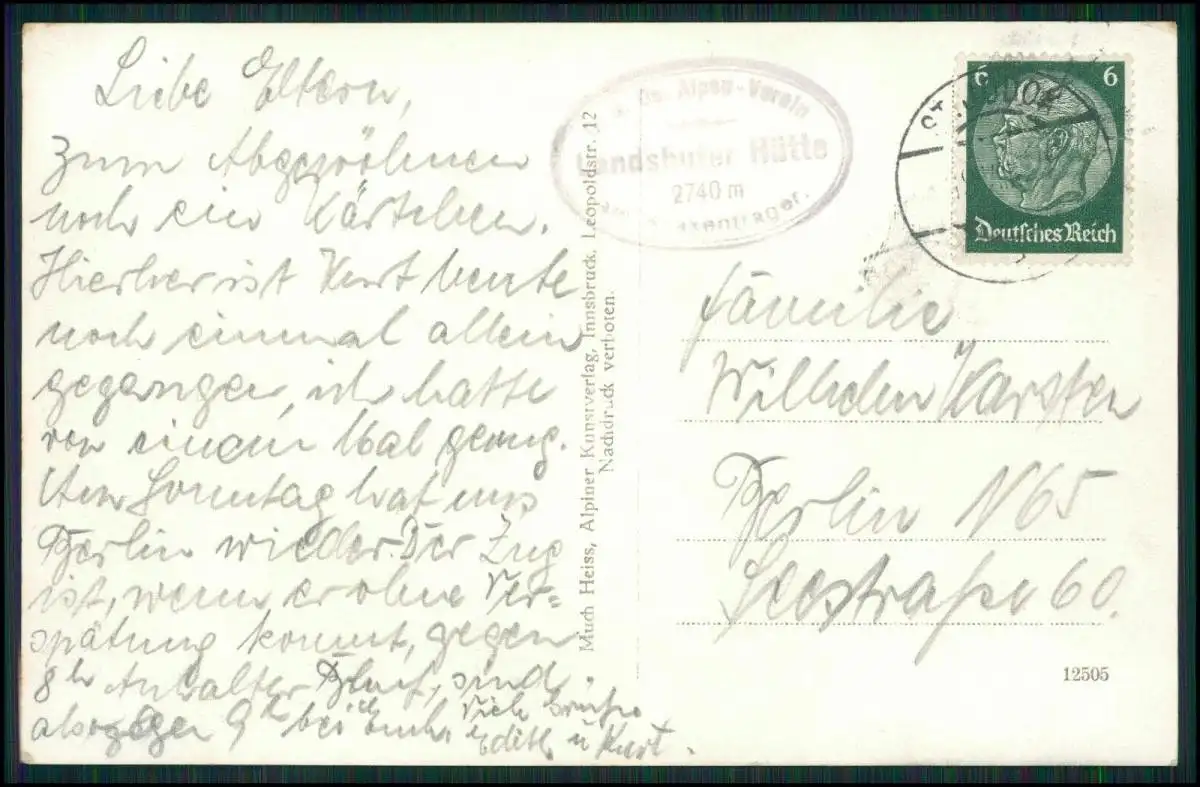 Liebe Eltern,
zum Abgewöhnen
noch ein Kärtchen.
Hierher ist Kurt heute
noch einmal allein
gegangen, ich hatte
von einem Mal genug.
Am Sonntag hat uns
Berlin wieder. Der Zug
ist, wenn er ohne Ver=
spätung kommt, gegen
8h Anhalter Bhnf, sind
also gegen 9h bei Euch. Viele Grüße
Edith u Kurt.
Much Heiss, Alpiner Kunstverlag, Innsbruck, Leopoldstr. 12
Nachdruck verboten.
Oe. Alpen-Verein
Landshuter Hütte
2740 m
6 6
Deutsches Reich
Familie
Wilhelm Karsten
Berlin N65
Seestraße 60.
12505